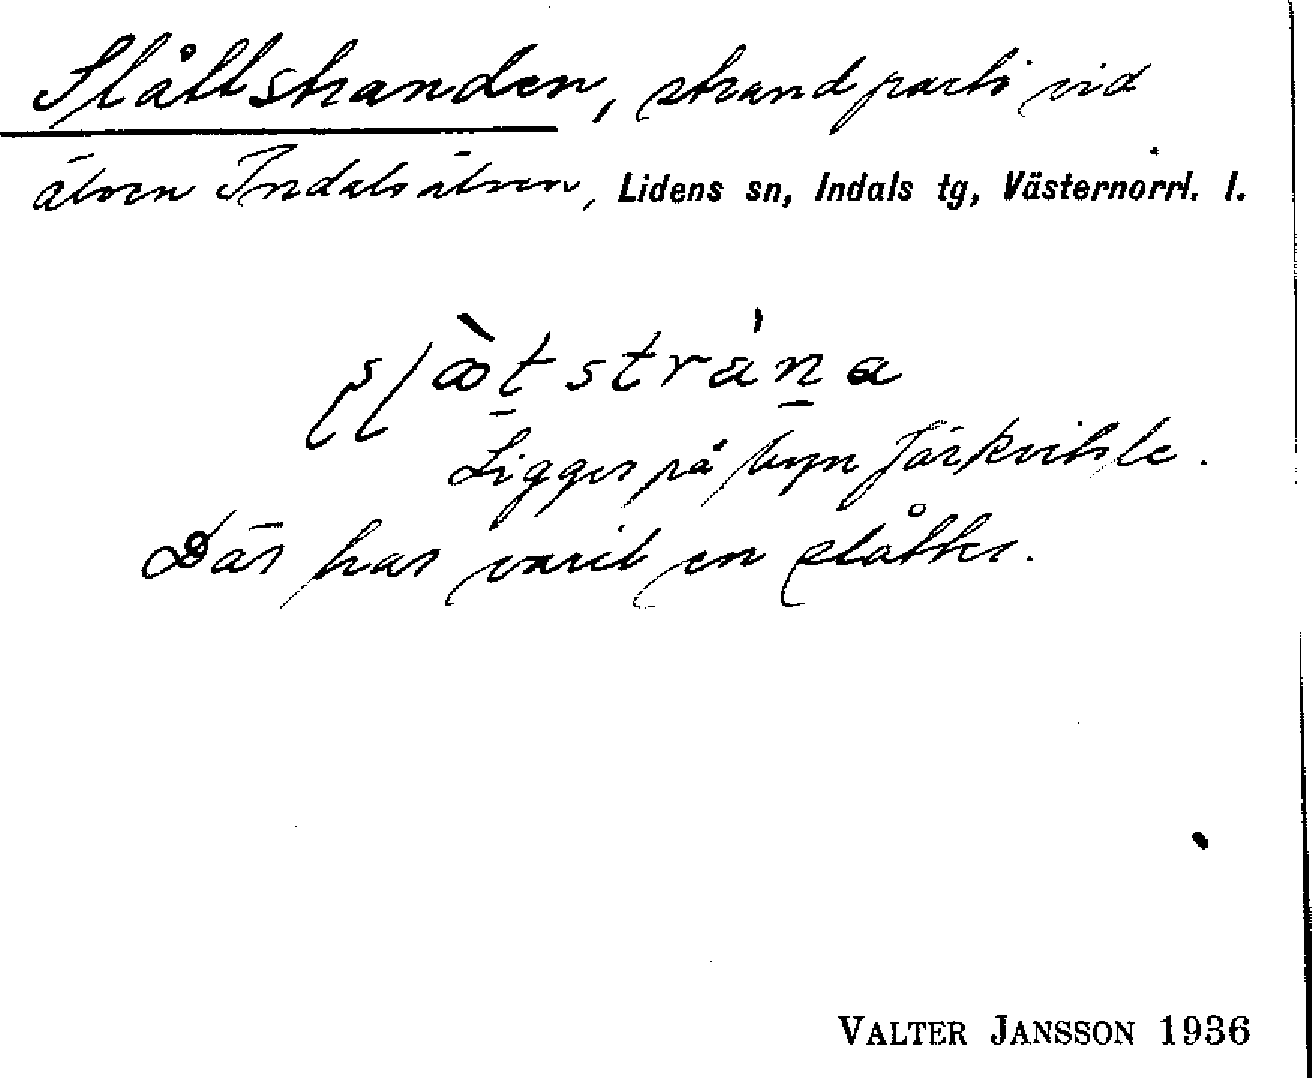 Slåttstranden, strandparti vid
älven Indalsälven, Lidens sn, Indals tg, Västernorrl. l.
Ligger på byn Järkvitsle.
Där har varit en slåtter.
VALTER JANSSON 1936